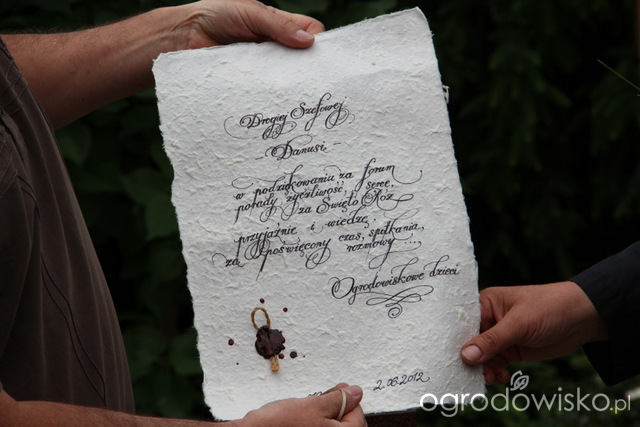 Drogiej Szefowej
- Danusi -
w podziękowaniu za forum
porady życzliwość, serce,
za Święto Róż
przyjaźnie i wiedzę,
za poświęcony czas, spotkania,
rozmowy ...
Ogrodowiskowe dzieci
2.06.2012
ogrodowisko.pl